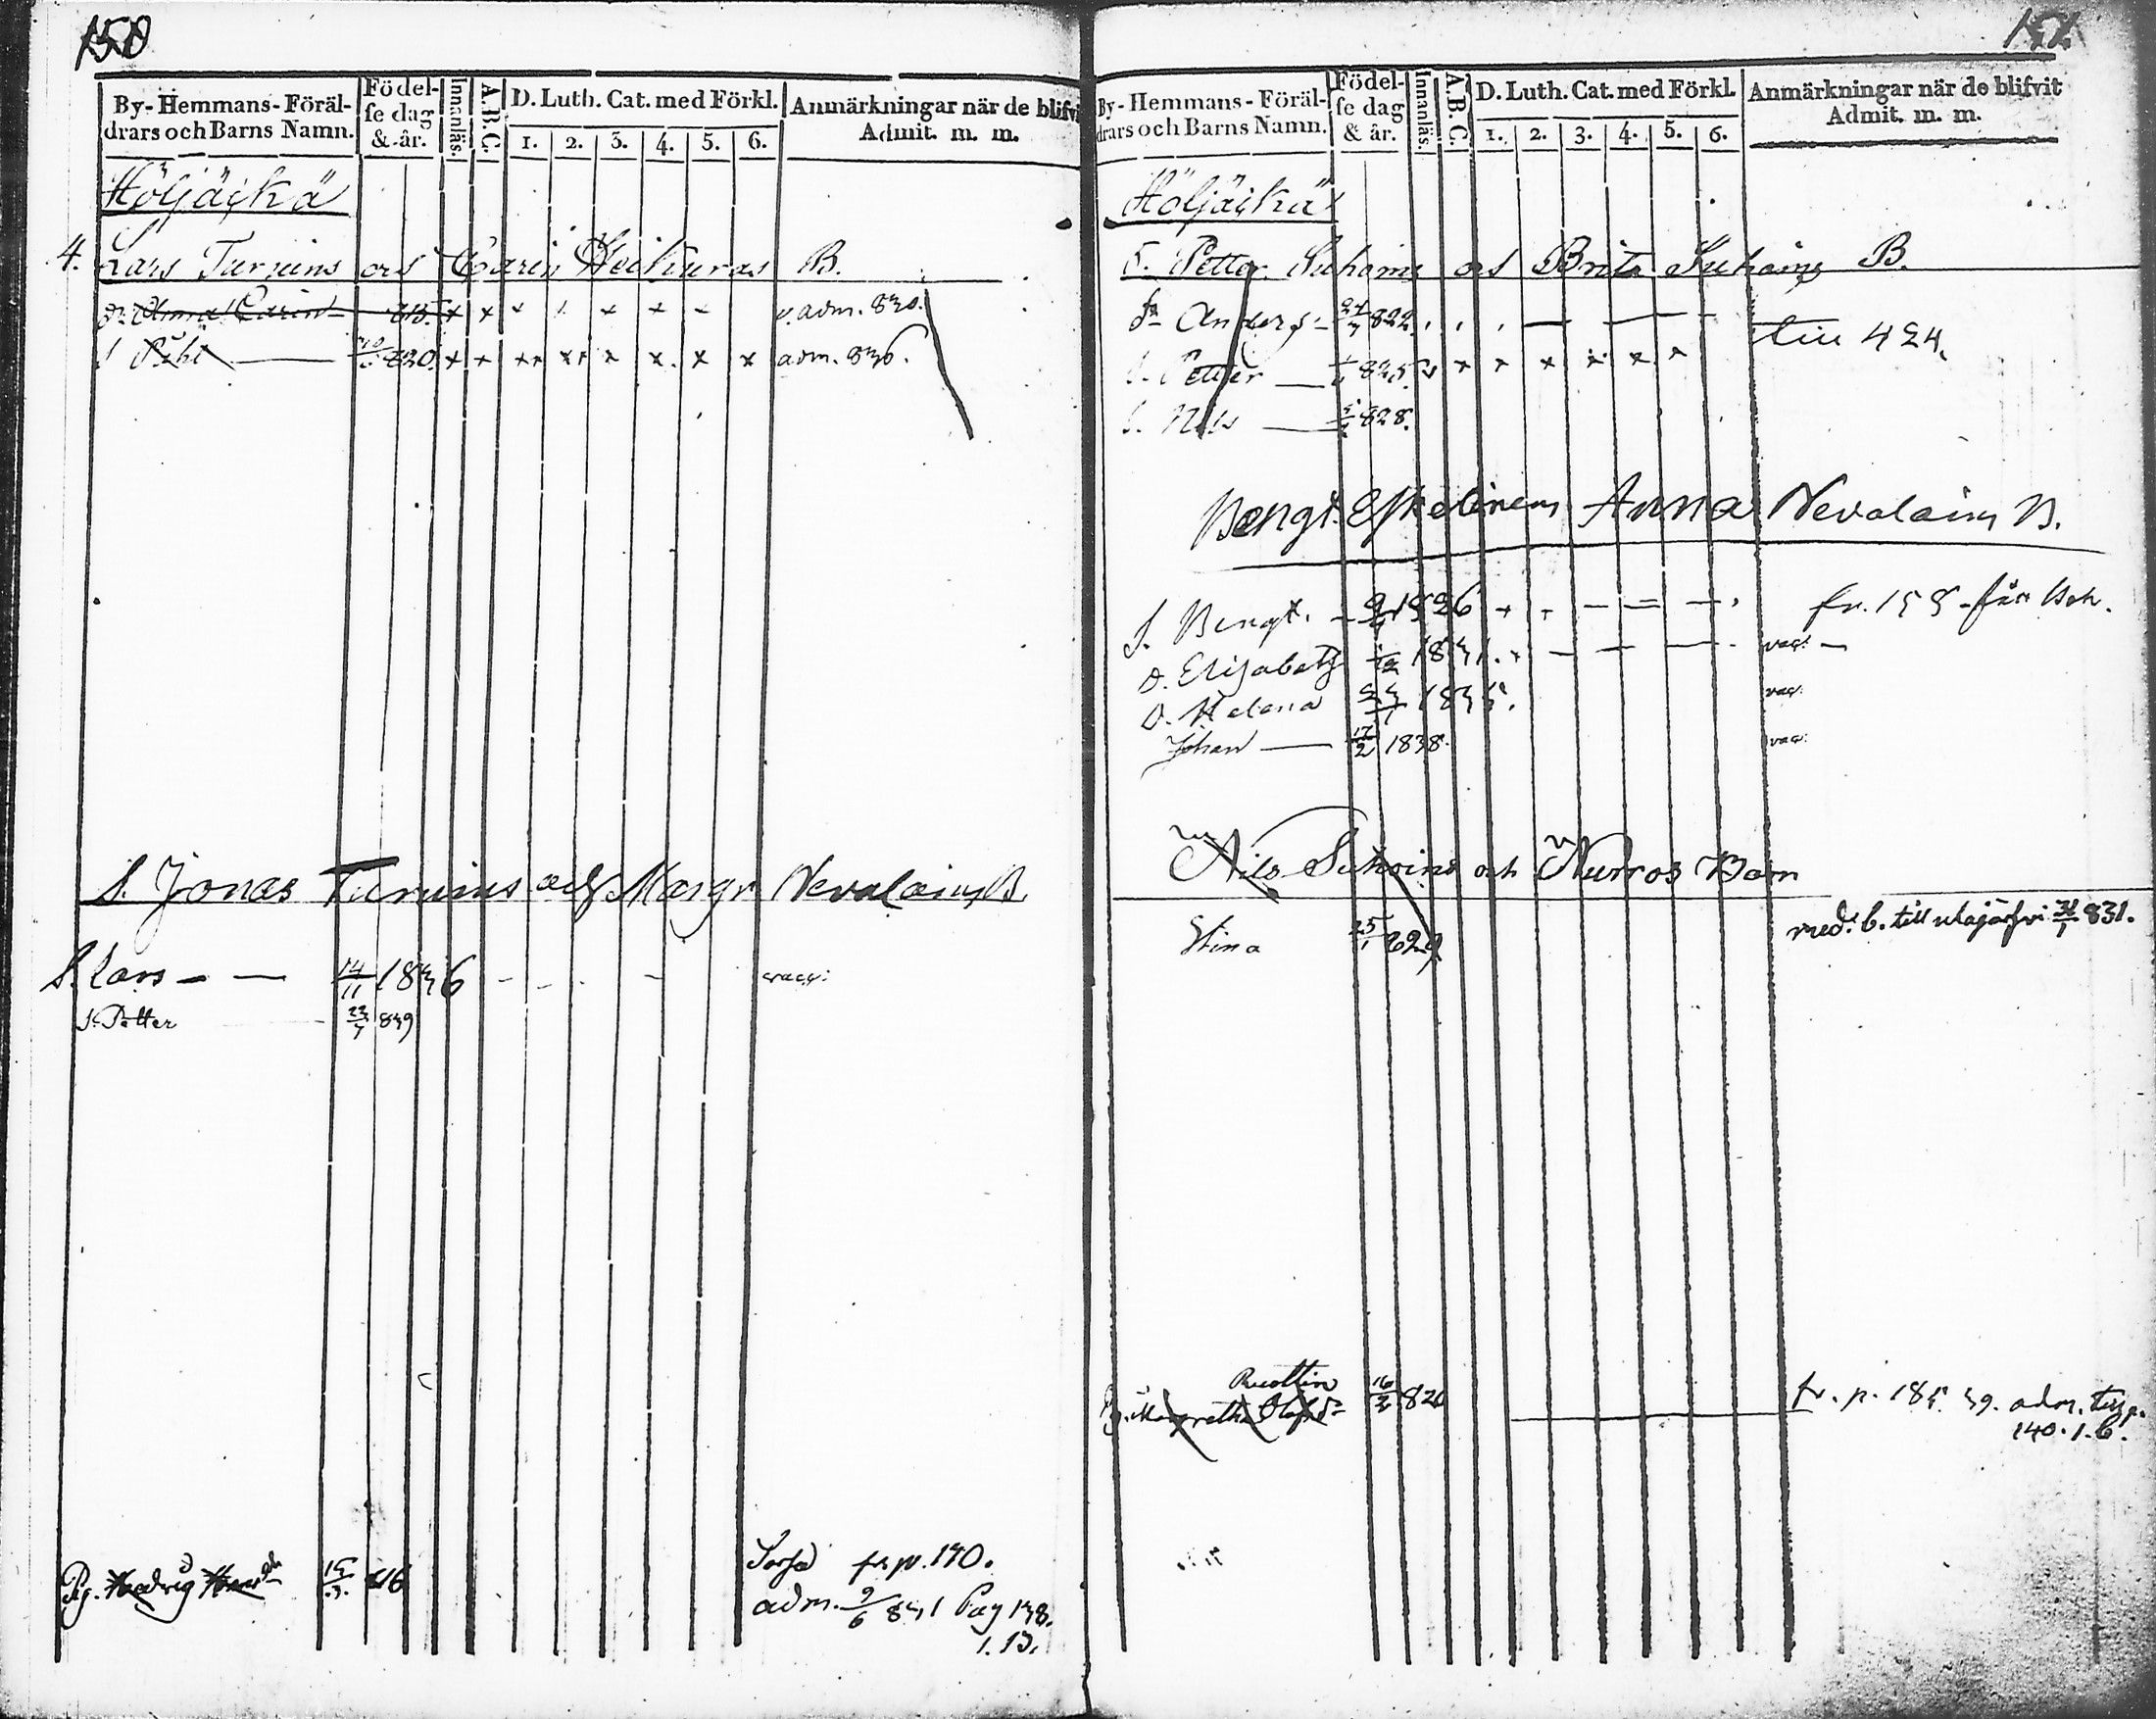 150
By-Hemmans-Föräl-
drars och Barns Namn.
Födel-
se dag
& år.
Innanläs.
A.B.C.
D. Luth. Cat. med Förkl.
1. 2. 3. 4. 5. 6.
Anmärkningar när de blifvit
Admit. m. m.
Höljäckä
4. Lars Turuins och Carin Heikuras B.
dr Anna Carin 815. x x x x x v. adm. 830.
820. x x x x x x x x adm. 836.
S. Jonas Turuins och Margr Nevalains B.
S. Lars — — 14/11 1836
S. Petter 23/7 839
Pig. Hedvig 15/3. 816
fr p. 140.
adm. 9/6 831 Pag 138.
1. B.
151
By-Hemmans-Föräl-
drars och Barns Namn.
Födel-
se dag
& år.
Innanläs.
A.B.C.
D. Luth. Cat. med Förkl.
1. 2. 3. 4. 5. 6.
Anmärkningar när de blifvit
Admit. m. m.
Höljäckä
5. Petter Suhoins och Brita Suhoins B.
Anders 822. — — till 424.
S. Petter — 825. x x x x x x
S. Nils — 828.
Bengt Eskelinens Anna Nevalains B.
S. Bengt. 1826 fr. 155
D. Elisabeth 1831. vac: —
D. Helena 1835. vac:
Johan — 17/2 1838. vac:
Nils Suhoins och Kurros Barn
Stina 25/1 829 med b. till 31/1 831.
Ruottin
Pig. Margretha Olofsdr 16/3 820 fr. p. 185 39. adm. till p.
140. 1. b.